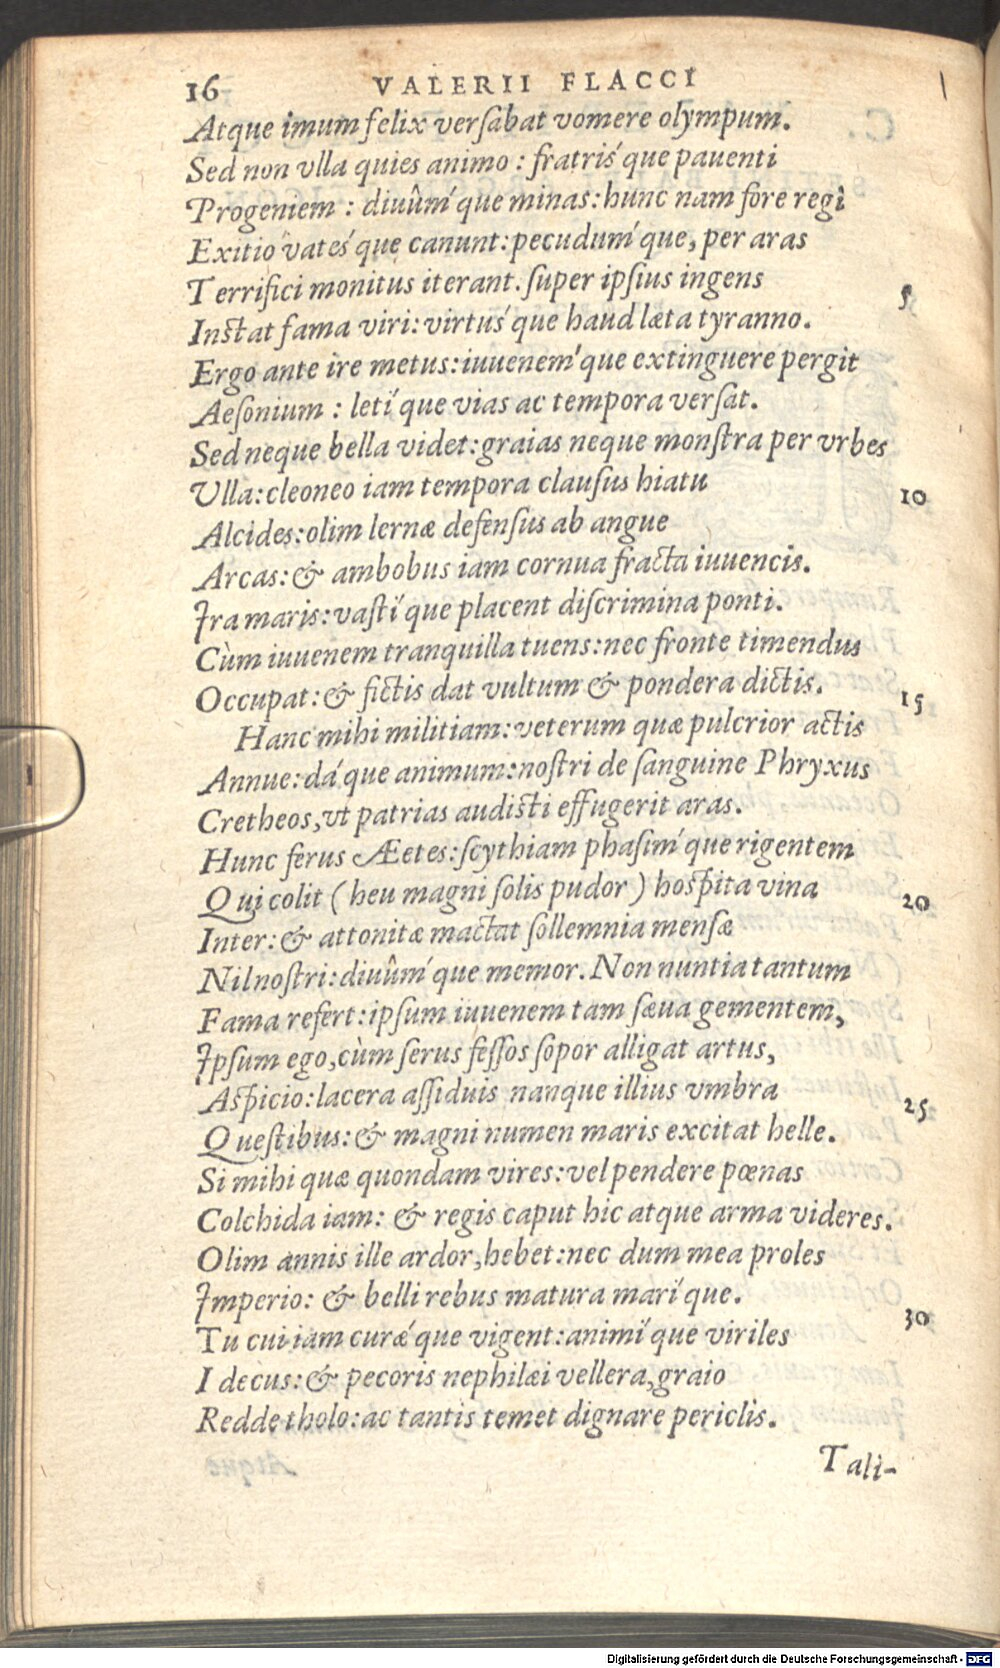 16 VALERII FLACCI
Atque imum felix versabat vomere olympum.
Sed non vlla quies animo : fratrisq́ue pauenti
Progeniem : diuûmq́ue minas: hunc nam fore regi
Exitio vatesq́ue canunt: pecudumq́ue, per aras
Terrifici monitus iterant. super ipsius ingens
5
Instat fama viri: virtusq́ue haud læta tyranno.
Ergo ante ire metus: iuuenemq́ue extinguere pergit
Aesonium : letiq́ue vias ac tempora versat.
Sed neque bella videt: graias neque monstra per vrbes
Vlla: cleoneo iam tempora clausus hiatu
10
Alcides: olim lernæ defensus ab angue
Arcas: & ambobus iam cornua fracta iuuencis.
Ira maris: vastiq́ue placent discrimina ponti.
Cùm iuuenem tranquilla tuens: nec fronte timendus
Occupat: & fictis dat vultum & pondera dictis.
15
Hanc mihi militiam: veterum quæ pulcrior actis
Annue: dáque animum: nostri de sanguine Phryxus
Cretheos, vt patrias audisti effugerit aras.
Hunc ferus Æetes: scythiam phasimq́ue rigentem
Qui colit ( heu magni solis pudor ) hospita vina
20
Inter: & attonitæ mactat sollemnia mensæ
Nil nostri: diuûmq́ue memor. Non nuntia tantum
Fama refert: ipsum iuuenem tam sæua gementem,
Ipsum ego, cùm serus fessos sopor alligat artus,
Aspicio: lacera assiduis nanque illius vmbra
25
Questibus: & magni numen maris excitat helle.
Si mihi quæ quondam vires: vel pendere pœnas
Colchida iam: & regis caput hic atque arma videres.
Olim annis ille ardor, hebet: nec dum mea proles
Imperio: & belli rebus matura mariq́ue.
30
Tu cui iam curæq́ue vigent: animiq́ue viriles
I decus: & pecoris nephilæi vellera, graio
Redde tholo: ac tantis temet dignare periclis.
Tali-
Digitalisierung gefördert durch die Deutsche Forschungsgemeinschaft - DFG